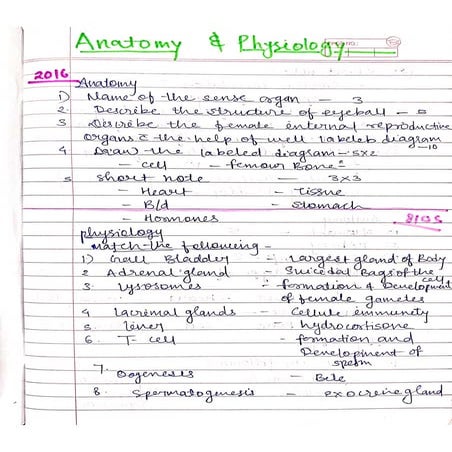 Anatomy & Physiology
2016 Anatomy
1) Name of the sense organ - 3
2. Describe the structure of eyeball - 5
3 Describe the female internal reproductive
organs & the help of well labeled diagram - 10
4 Draw the labeled diagram - 5x2
- cell - femour Bone
5 short note 3x3
- Heart - tissue
- B/d - stomach
- Hormones
physiology
Match the following -
1) Gall Bladder - Largest gland of Body
2 Adrenal gland - Suicidal Bags of the cell
3. Lysosomes - formation & Development
of female gametes
4 Lacrimal glands - Cellule immunity
5 Liver - hydrocortisone
6. T-cell - formation and
Development of
sperm
7. Oogenesis - Bile
8. Spermatogenesis - exocrine gland